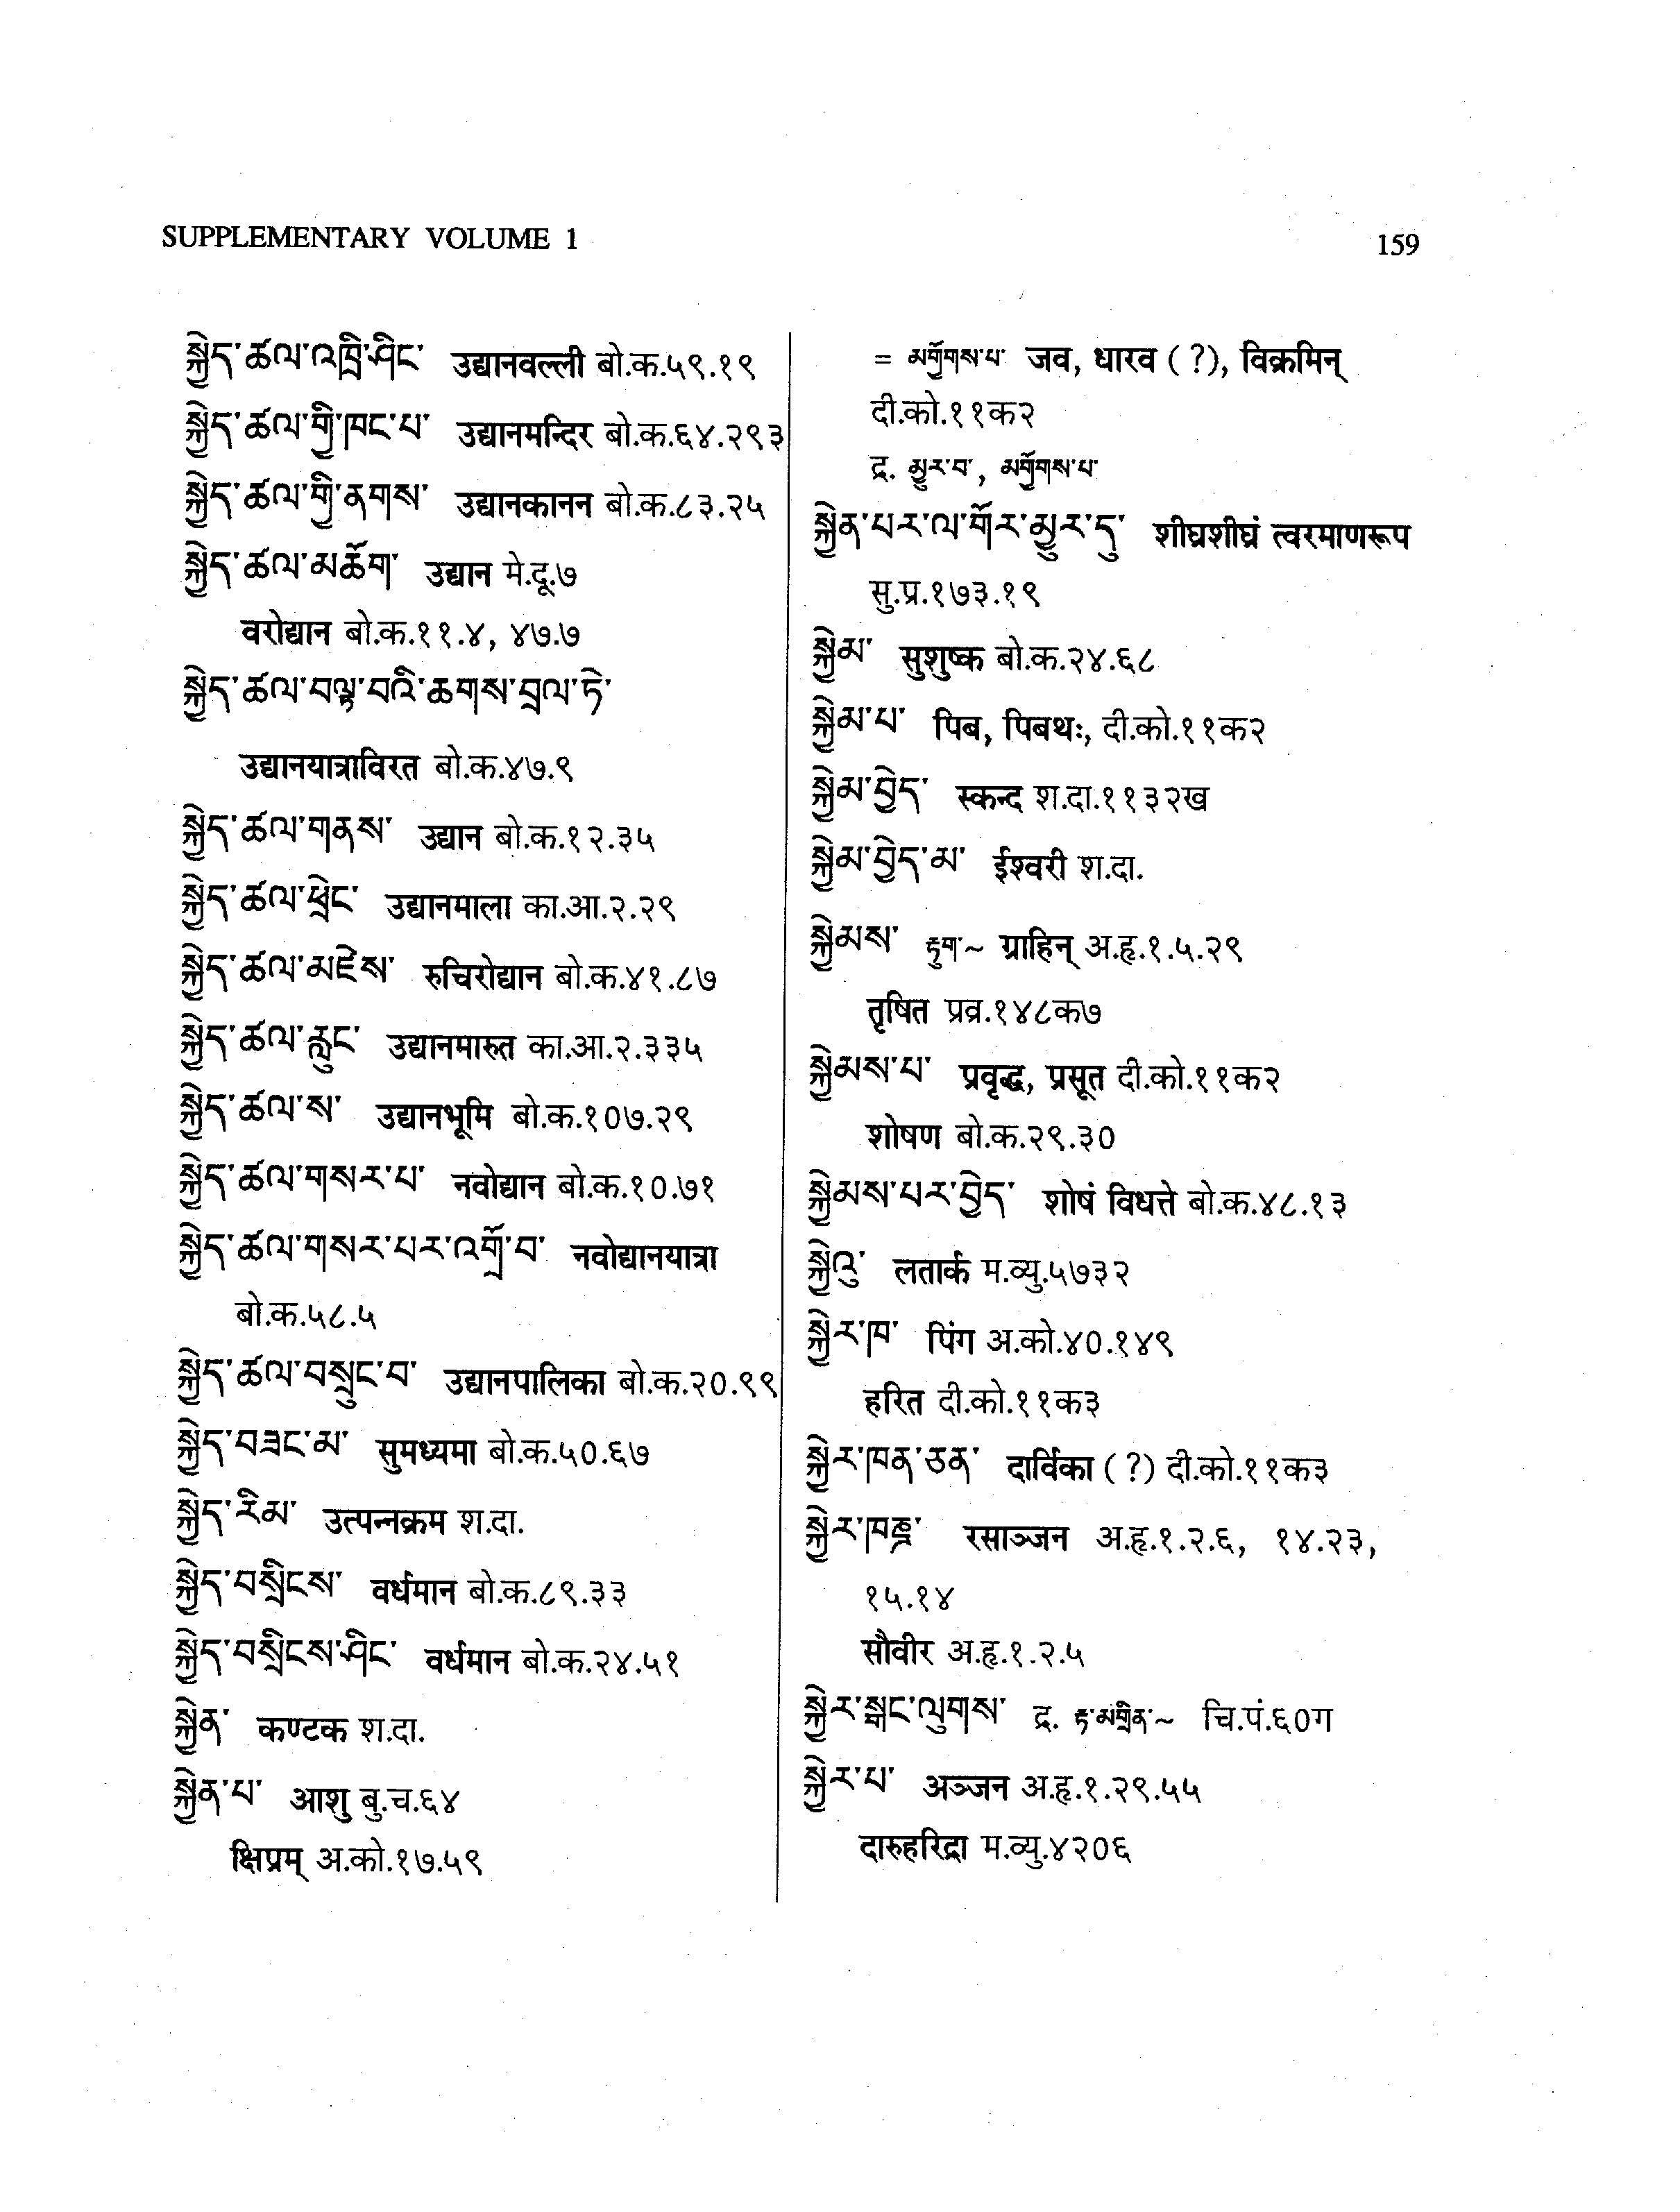 SUPPLEMENTARY VOLUME 1
159
སྐྱེད་ཚལ་འཁྲི་ཤིང་ उद्यानवल्ली बो.क.५९.१९
སྐྱེད་ཚལ་གྱི་ཁང་པ་ उद्यानमन्दिर बो.क.६४.२९३
སྐྱེད་ཚལ་གྱི་ནགས་ उद्यानकानन बो.क.८३.२५
སྐྱེད་ཚལ་མཆོག་ उद्यान मे.दू.७
वरोद्यान बो.क.११.४, ४७.७
སྐྱེད་ཚལ་བལྟ་བའི་ཆགས་བྲལ་ཏེ་
उद्यानयात्राविरत बो.क.४७.९
སྐྱེད་ཚལ་གནས་ उद्यान बो.क.१२.३५
སྐྱེད་ཚལ་ཕྲེང་ उद्यानमाला का.आ.२.२९
སྐྱེད་ཚལ་མཛེས་ रुचिरोद्यान बो.क.४१.८७
སྐྱེད་ཚལ་རླུང་ उद्यानमारुत का.आ.२.३३५
སྐྱེད་ཚལ་ས་ उद्यानभूमि बो.क.१०७.२९
སྐྱེད་ཚལ་གསར་པ་ नवोद्यान बो.क.१०.७१
སྐྱེད་ཚལ་གསར་པར་འགྲོ་བ་ नवोद्यानयात्रा
बो.क.५८.५
སྐྱེད་ཚལ་བསྲུང་བ་ उद्यानपालिका बो.क.२०.९९
སྐྱེད་བཟང་མ་ सुमध्यमा बो.क.५०.६७
སྐྱེད་རིམ་ उत्पन्नक्रम श.दा.
སྐྱེད་བསྲིངས་ वर्धमान बो.क.८९.३३
སྐྱེད་བསྲིངས་ཤིང་ वर्धमान बो.क.२४.५१
སྐྱེན་ कण्टक श.दा.
སྐྱེན་པ་ आशु बु.च.६४
क्षिप्रम् अ.को.१७.५९
= མགྱོགས་པ་ जव, धारव (?), विक्रमिन्
दी.को.११क२
द्र. མྱུར་བ་, མགྱོགས་པ་
སྐྱེན་པར་ལ་གོར་མྱུར་དུ་ शीघ्रशीघ्रं त्वरमाणरूप
सु.प्र.१७३.१९
སྐྱེམ་ सुशुष्क बो.क.२४.६८
སྐྱེམ་པ་ पिब, पिबथः, दी.को.११क२
སྐྱེམ་བྱེད་ स्कन्द श.दा.११३२ख
སྐྱེམ་བྱེད་མ་ ईश्वरी श.दा.
སྐྱེམས་ རྟུག་~ ग्राहिन् अ.हृ.१.५.२९
तृषित प्रव्र.१४८क७
སྐྱེམས་པ་ प्रवृद्ध, प्रसूत दी.को.११क२
शोषण बो.क.२९.३०
སྐྱེམས་པར་བྱེད་ शोषं विधत्ते बो.क.४८.१३
སྐྱེའུ་ लतार्क म.व्यु.५७३२
སྐྱེར་ཁ་ पिंग अ.को.४०.१४९
हरित दी.को.११क३
སྐྱེར་ཁན་ཅན་ दार्विका (?) दी.को.११क३
སྐྱེར་ཁཎྜ་ रसाञ्जन अ.हृ.१.२.६, १४.२३,
१५.१४
सौवीर अ.हृ.१.२.५
སྐྱེར་སྒང་ལུགས་ द्र. རྟ་མགྲིན་~ चि.पं.६०ग
སྐྱེར་པ་ अञ्जन अ.हृ.१.२९.५५
दारुहरिद्रा म.व्यु.४२०६